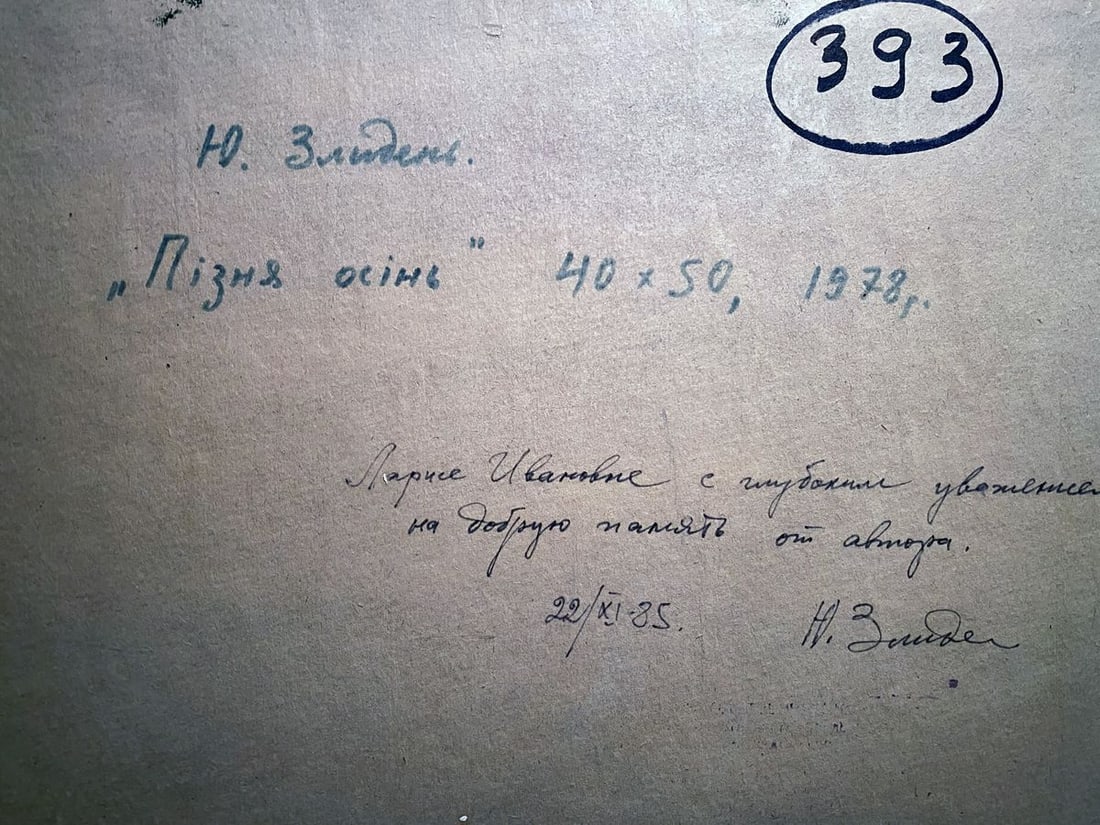 393
Ю. Злидень.
„Пізня осінь" 40 x 50, 1978 р.
Ларисе Ивановне с глубоким уважением
на добрую память от автора.
22/XI-85. Ю. Злиден